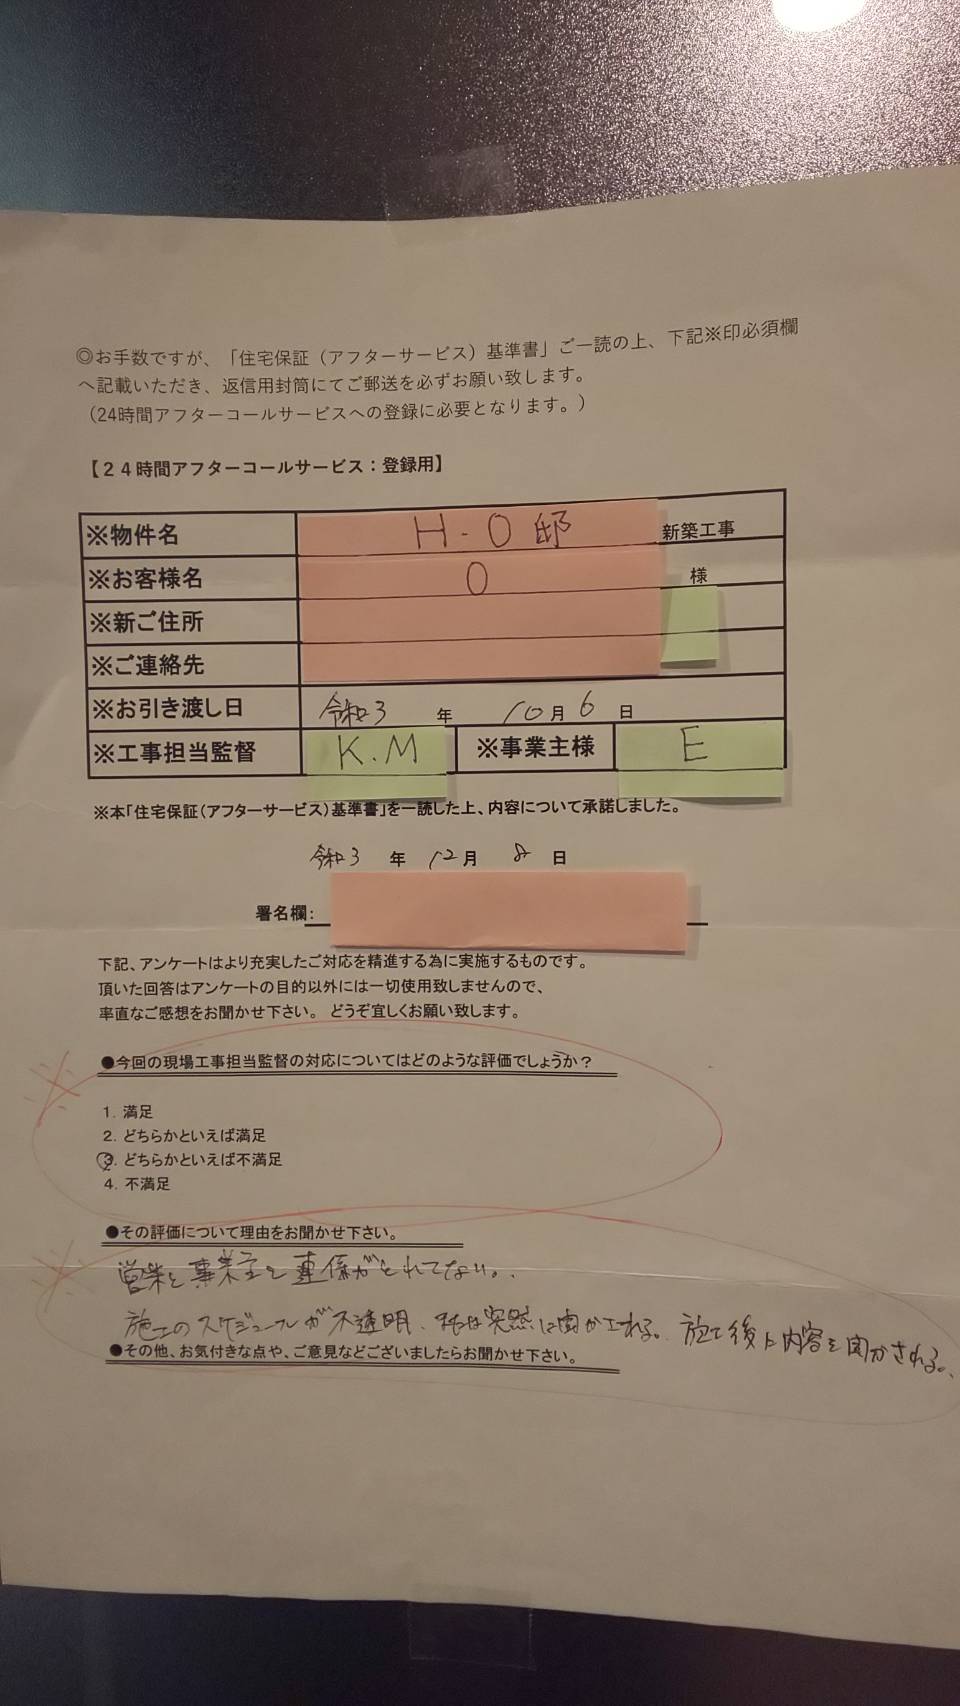 ◎お手数ですが、「住宅保証（アフターサービス）基準書」ご一読の上、下記※印必須欄
へ記載いただき、返信用封筒にてご郵送を必ずお願い致します。
（24時間アフターコールサービスへの登録に必要となります。）
【２４時間アフターコールサービス：登録用】
※物件名 H-O邸 新築工事
※お客様名 O 様
※新ご住所
※ご連絡先
※お引き渡し日 令和3 年 10月 6 日
※工事担当監督 K.M ※事業主様 E
※本「住宅保証（アフターサービス）基準書」を一読した上、内容について承諾しました。
令和3 年 12月 8 日
署名欄：
下記、アンケートはより充実したご対応を精進する為に実施するものです。
頂いた回答はアンケートの目的以外には一切使用致しませんので、
率直なご感想をお聞かせ下さい。 どうぞ宜しくお願い致します。
※ ●今回の現場工事担当監督の対応についてはどのような評価でしょうか？
1. 満足
2. どちらかといえば満足
3. どちらかといえば不満足
4. 不満足
※ ●その評価について理由をお聞かせ下さい。
営業と事業主と連係がとれてない。
施工のスケジュールが不透明、私は突然に聞かされる。施工後に内容を聞かされる。
●その他、お気付きな点や、ご意見などございましたらお聞かせ下さい。